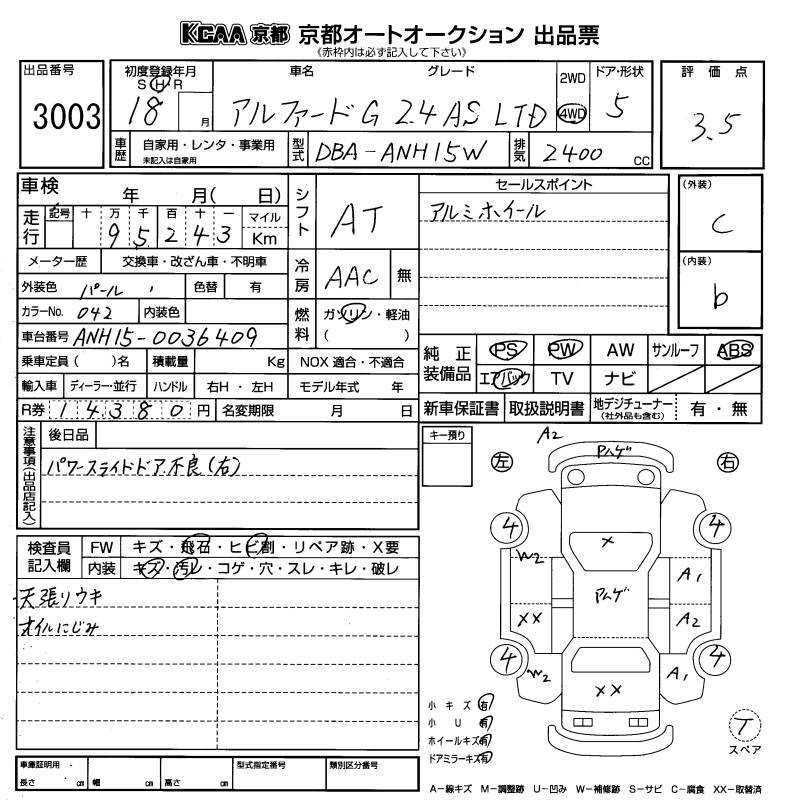 KCAA 京都 京都オートオークション 出品票
《赤枠内は必ず記入して下さい》
出品番号
3003
初度登録年月
S H R
18 月
車名 グレード
アルファード G 2.4 AS LTD
2WD
4WD
ドア・形状
5
評価点
3.5
車歴
自家用・レンタ・事業用
未記入は自家用
型式
DBA-ANH15W
排気
2400 CC
車検 年 月( 日)
走行
記号 十 万 千 百 十 一 マイル
9 5 2 4 3 Km
シフト
AT
セールスポイント
アルミホイール
(外装)
C
(内装)
b
メーター歴 交換車・改ざん車・不明車
外装色 パール 色替 有
冷房
AAC 無
カラーNo. 042 内装色
燃料
ガソリン・軽油
( )
車台番号 ANH15-0036409
乗車定員( )名 積載量 Kg NOX 適合・不適合
輸入車 ディーラー・並行 ハンドル 右H・左H モデル年式 年
R券 14380円 名変期限 月 日
純正装備品
PS PW AW サンルーフ ABS
エアバック TV ナビ
新車保証書 取扱説明書 地デジチューナー
(社外品も含む)
有・無
注意事項(出品店記入)
後日品
パワースライドドア不良(右)
キー預り
左 右
A2
アハゲ
4 4
X
W2
アハゲ
A1
XX
A2
4 4
W2
XX
A1
検査員記入欄
FW キズ・飛石・ヒビ割・リペア跡・X要
内装 キズ・汚レ・コゲ・穴・スレ・キレ・破レ
天張リウキ
オイルにじみ
小キズ 有
小U 有
ホイールキズ 有
ドアミラーキズ 有
T
スペア
車庫証明用・
長さ cm 幅 cm 高さ cm
型式指定番号 類別区分番号
A−線キズ M−調整跡 U−凹み W−補修跡 S−サビ C−腐食 XX−取替済